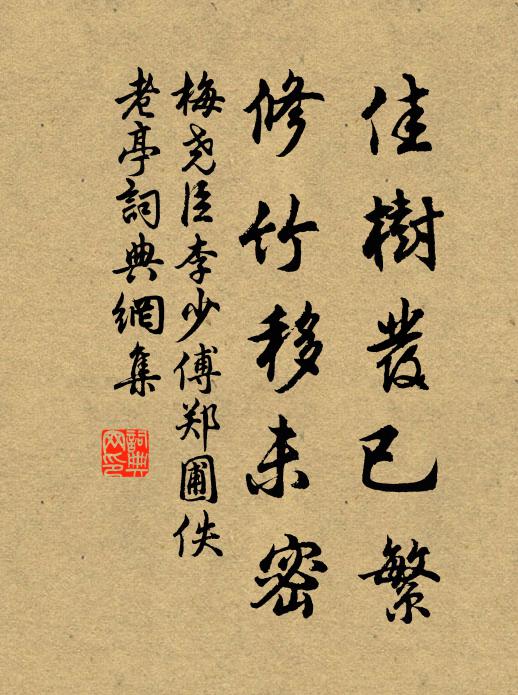 佳樹發已繁
修竹移未密
梅尧臣李少傅郑圃佚
老亭詞典網集
詞典網印